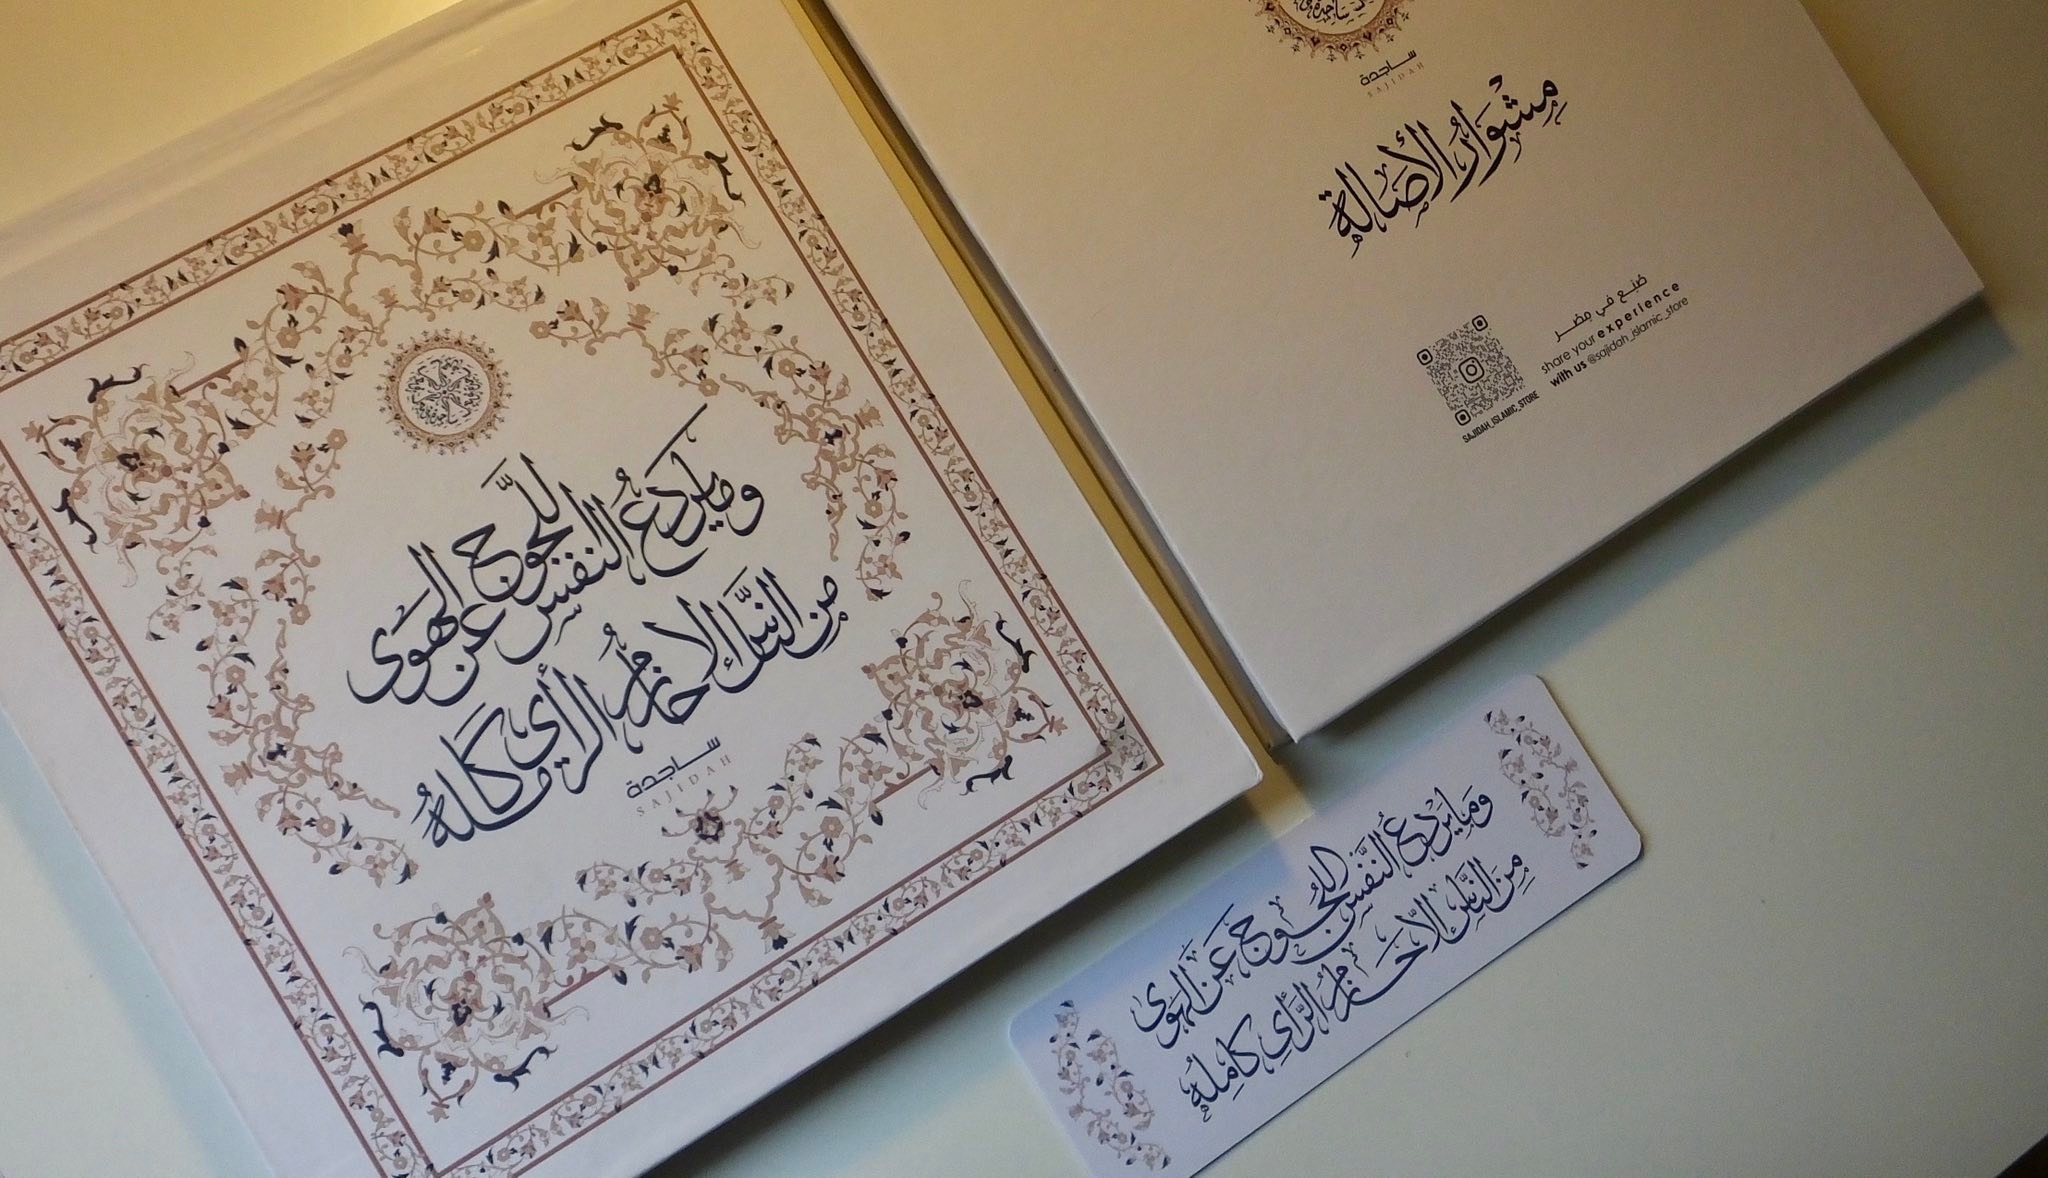 وما يردع النفس اللجوج عن الهوى
من الناس إلا حازم الرأي كامله
ساجدة
SAJIDAH
ساجدة
SAJIDAH
مِشْوَارُ الأَصَالَة
صُنِع في مِصْر
share your experience
with us @sajidah_islamic_store
SAJIDAH_ISLAMIC_STORE
وَمَا يَرْدَعُ النَّفْسَ اللَّجُوجَ عَنِ الهَوَى
مِنَ النَّاسِ إلَّا حَازِمُ الرَّأْيِ كَامِلُهُ